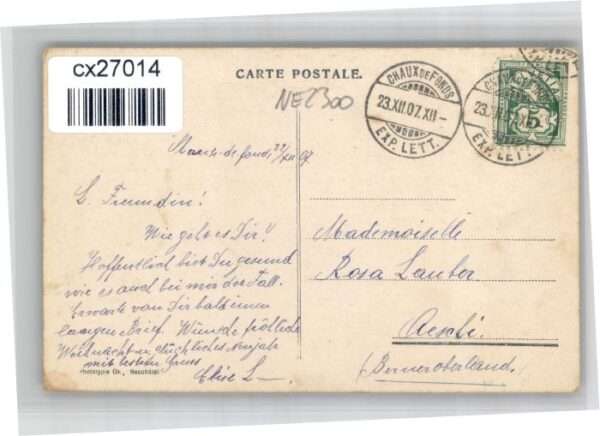 cx27014
CARTE POSTALE.
NE2300
CHAUX DE FONDS
23.XII.07.XII-
EXP. LETT.
23.XII.
EXP. LETT.
5
de fonds 23/XII 07.
L. Freundin!
Wie geht es Dir?
Hoffentlich bist Du gesund
wie es auch bei mir der Fall.
Erwarte von Dir bald einen
langen Brief. Wünsche fröhliche
Weihnachten, glückliches Neujahr
mit besten Gruss
Elise L
Mademoiselle
Rosa Lauber
Aeschi.
(Berneroberland.)
Phototypie Co., Neuchâtel